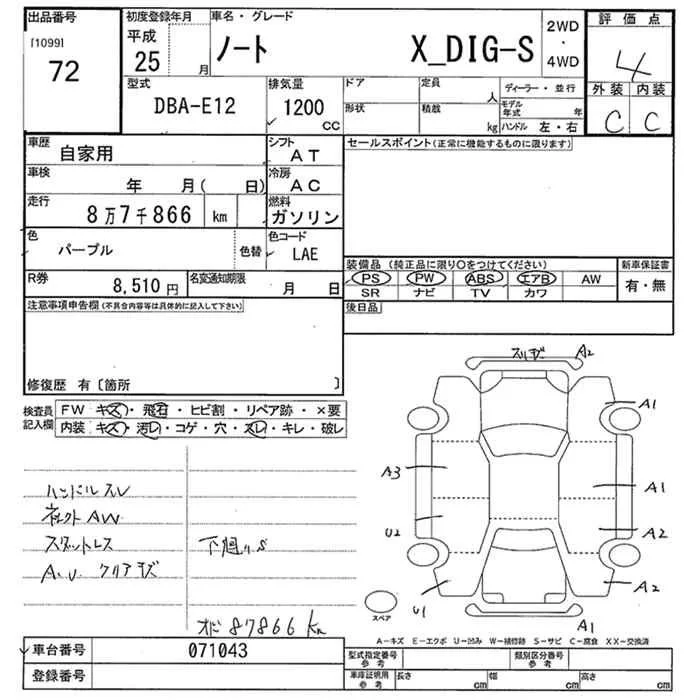 出品番号
[1099]
72
初度登録年月
平成
25 月
車名・グレード
ノート X_DIG-S
2WD
・
4WD
評価点
4
外装 内装
C C
型式
DBA-E12
排気量
1200
cc
ドア
定員
人
形状
積載
kg
ディーラー・並行
モデル年式 年
ハンドル 左・右
車歴
自家用
シフト
AT
車検
年 月( 日)
冷房
AC
走行
8万7千866 km
燃料
ガソリン
色
パープル
色替
色コード
LAE
R券
8,510 円
名変通知期限
月 日
セールスポイント(正常に機能するものに限ります)
装備品 (純正品に限り○をつけてください)
新車保証書
PS PW ABS エアB AW
有・無
SR ナビ TV カワ
後日品
注意事項申告欄(不具合内容等は具体的に記入して下さい)
修復歴 有〔箇所 〕
検査員
記入欄
FW キズ・飛石・ヒビ割・リペア跡・×要
内装 キズ・汚レ・コゲ・穴・スレ・キレ・破レ
ハンドルスレ
AW
スタットレス
下廻りS
A.U. クリアキズ
87866 km
スリキズ
A2
A1
A3
A1
U2
A2
A2
U1
A1
スペア
A-キズ E-エクボ U-凹み W-補修跡 S-サビ C-腐食 XX-交換済
車台番号
071043
登録番号
型式指定番号
参考
類別区分番号
参考
車庫証明用
参考
長さ cm
幅 cm
高さ cm